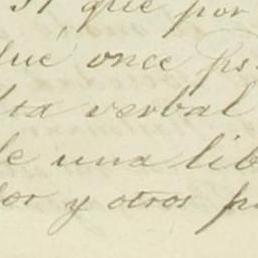 que por
que once ps
verbal
de una lib
dor y otros p